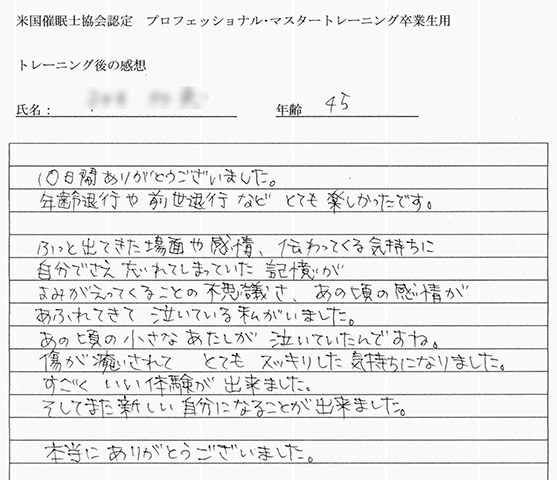 米国催眠士協会認定　プロフェッショナル・マスタートレーニング卒業生用
トレーニング後の感想
氏名：　年齢　45
10日間ありがとうございました。
年齢退行や前世退行など とても楽しかったです。
ふっと出てきた場面や感情、伝わってくる気持ちに
自分でさえ忘れてしまっていた 記憶が
よみがえってくることの不思議さ、あの頃の感情が
あふれてきて 泣いている私がいました。
あの頃の小さなあたしが 泣いていたんですね。
傷が癒されて とても スッキリした気持ちになりました。
すごく いい体験が 出来ました。
そしてまた新しい自分になることが出来ました。
本当に ありがとうございました。